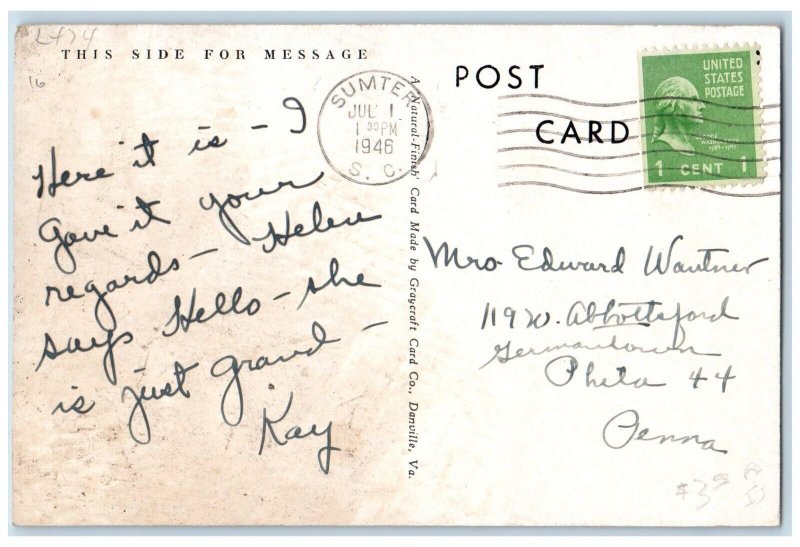 L474
THIS SIDE FOR MESSAGE
16
Here it is – I
Gave it your
regards – Helen
says Hello – she
is just grand –
Kay
A 'Natural-Finish' Card Made by Graycraft Card Co., Danville, Va.
SUMTER
JUL 1
1 30 PM
1946
S. C.
POST
CARD
UNITED
STATES
POSTAGE
WASHINGTON
1 CENT 1
Mrs Edward Wautner
119 W. Abbottsford
Germantown
Phila 44
Penna
$3